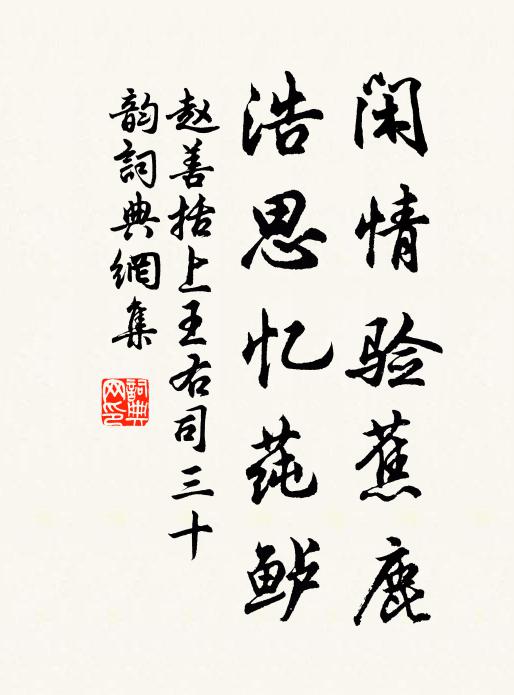 闲情验蕉鹿
浩思忆莼鲈
赵善括上王右司三十
韵词典網集
詞典
网印